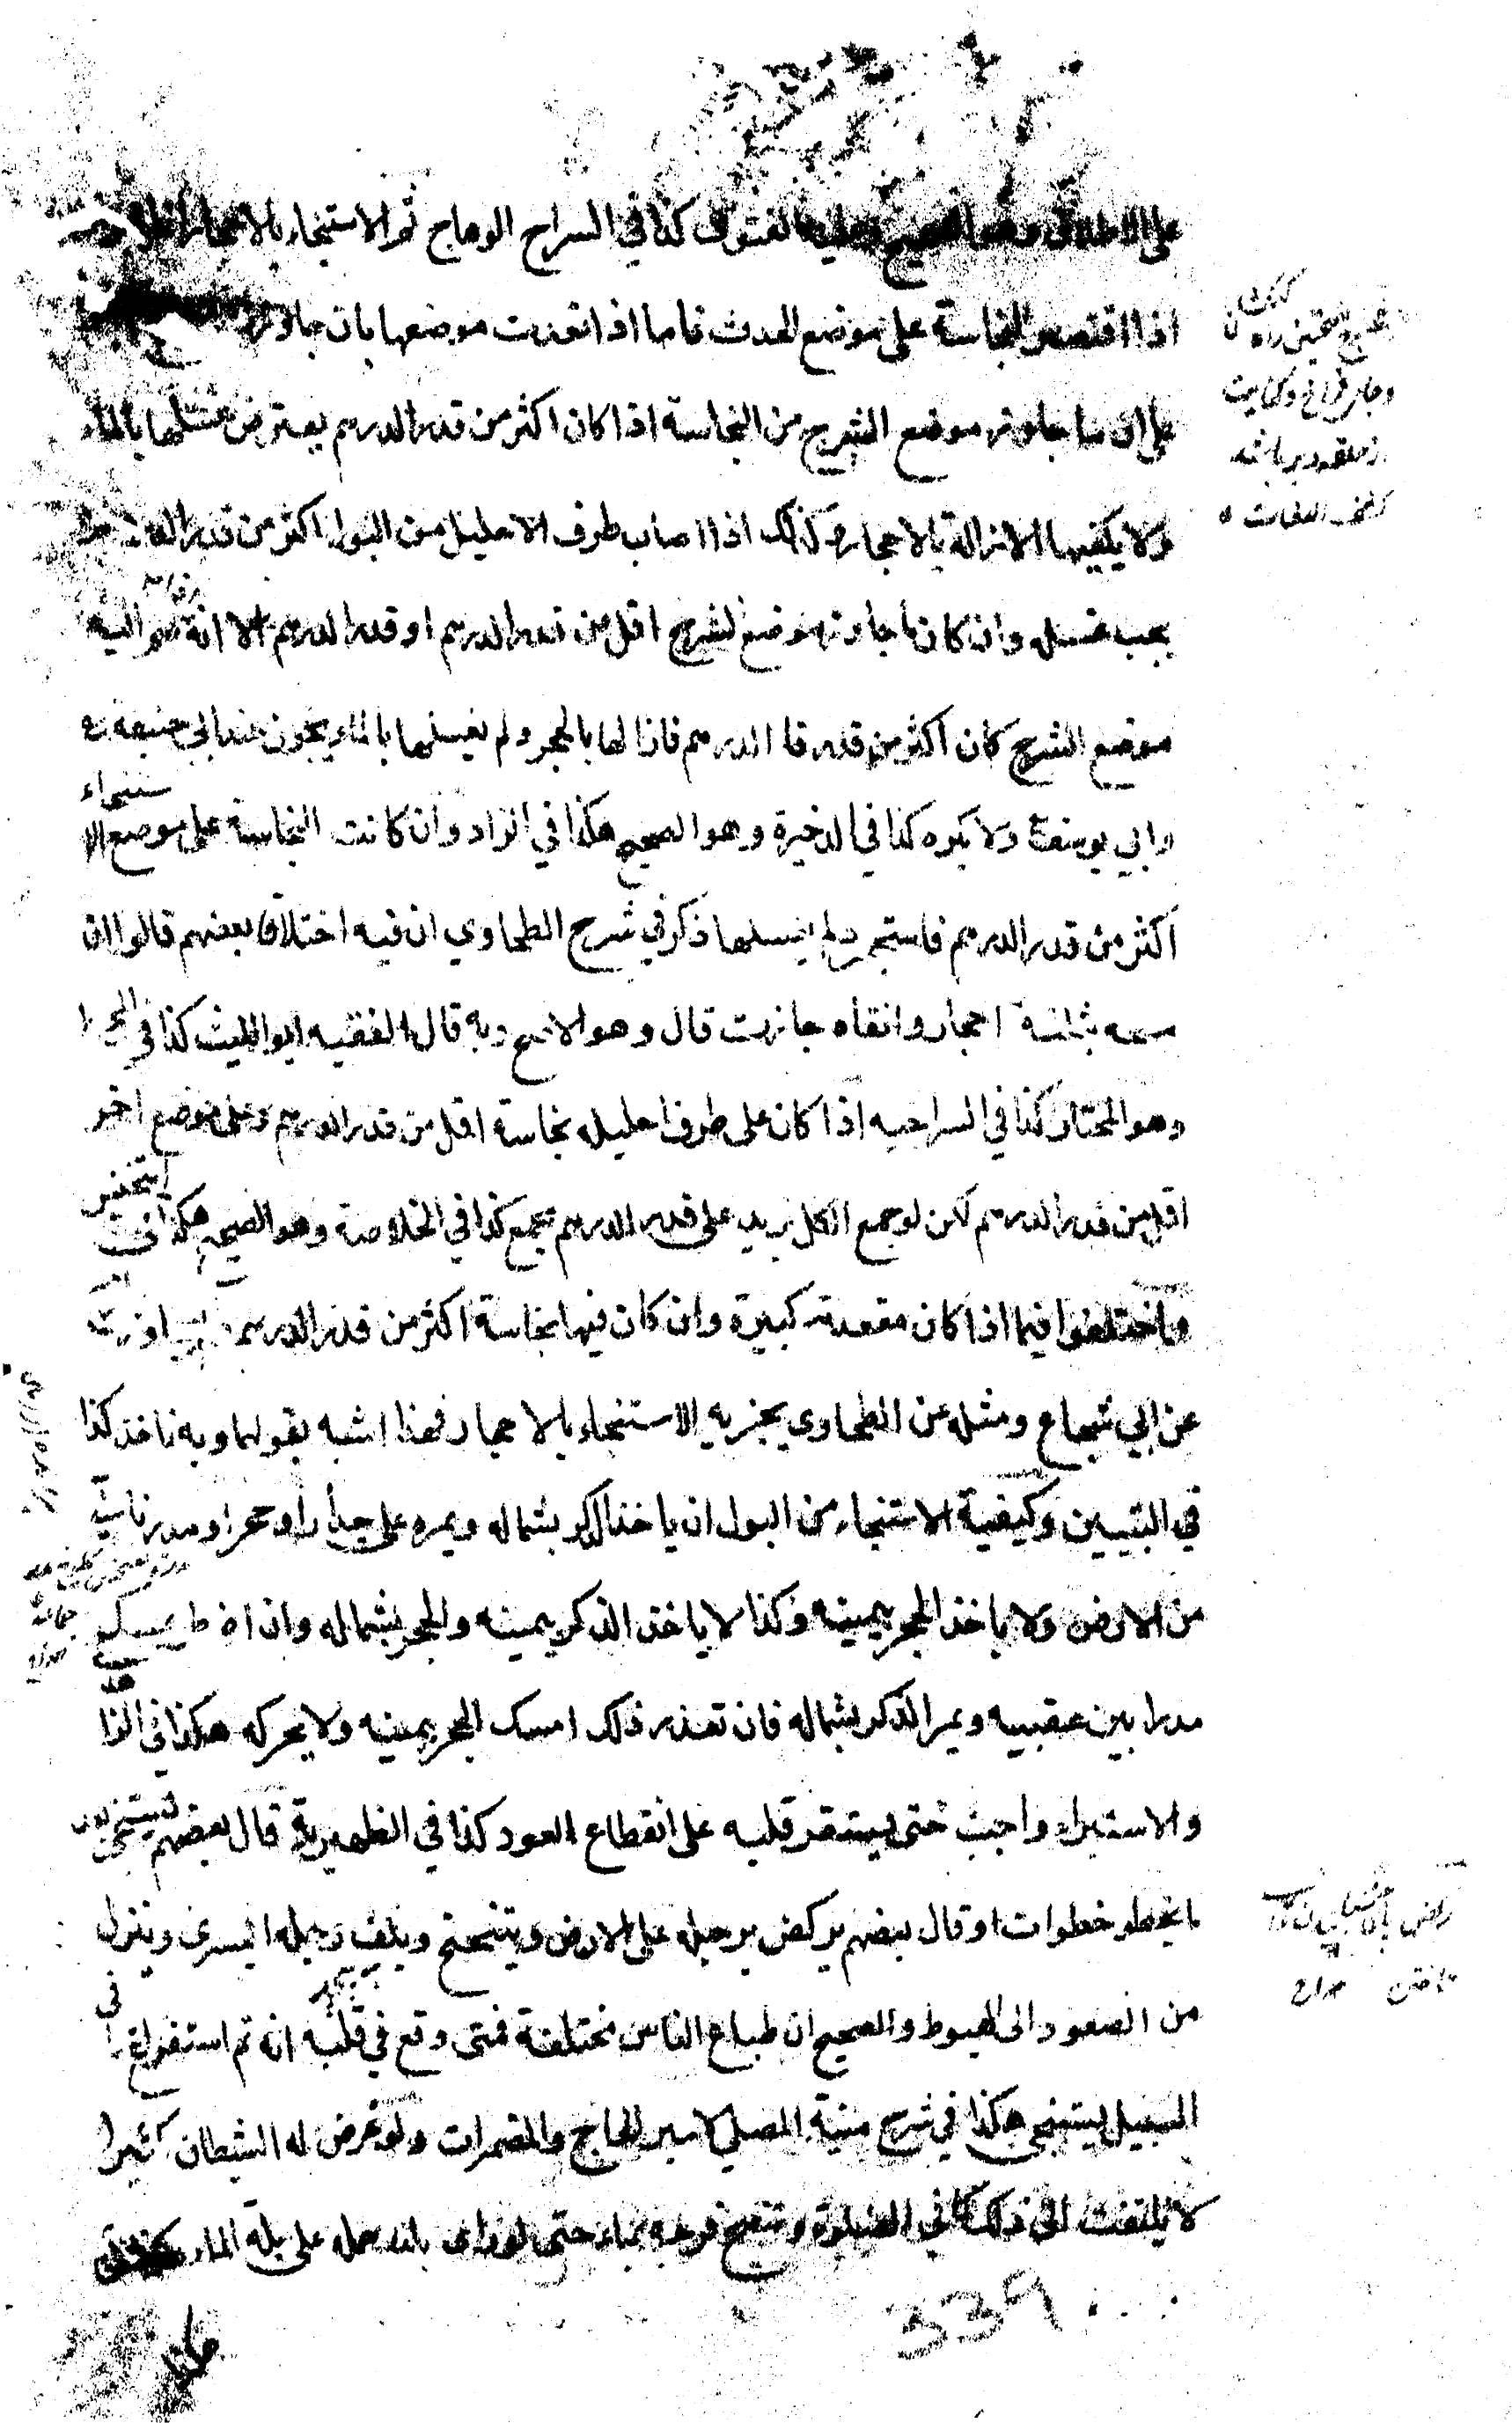 على الاطلاق وهو الصحيح وعليه الفتوى كذا في السراج الوهاج ثم الاستنجاء بالاحجار انما
اذا اقتصر النجاسة على موضع الحدث فاما اذا تعدت موضعها بان جاوزت
على ان ما جاوزت موضع الشرج من النجاسة اذا كان اكثر من قدر الدرهم يفترض غسلها بالماء
ولا يكفيها الازالة بالاحجار وكذلك اذا اصاب طرف الاحليل من البول اكثر من قدر الدرهم
يجب غسله وان كان ما جاوزت موضع الشرج اقل من قدر الدرهم او قدر الدرهم الا انه ضم اليه
موضع الشرج كان اكثر من قدر الدرهم فازالها بالحجر ولم يغسلها بالماء يجوز عند ابي حنيفة
وابي يوسف ولا يكره كذا في الذخيرة وهو الصحيح هكذا في الزاد وان كانت النجاسة على موضع الاستنجاء
اكثر من قدر الدرهم فاستجمر ولم يغسلها ذكر في شرح الطحاوي ان فيه اختلاف بعضهم قالوا ان
مسحه بثلثة احجار وانقاه جازت قال وهو الاصح وبه قال الفقيه ابو الليث كذا في المحيط
وهو المختار كذا في السراجيه اذا كان على طرف احليله نجاسة اقل من قدر الدرهم وعلى موضع اخر
اقل من قدر الدرهم لكن لو جمع الكل يزيد على قدر الدرهم يجمع كذا في الخلاصة وهو الصحيح هكذا في التجنيس
واختلفوا فيما اذا كان مقعدته كبيرة وان كان فيها نجاسة اكثر من قدر الدرهم
عن ابي شجاع ومثله عن الطحاوي يجزيه الاستنجاء بالاحجار فهذا اشبه بقولهما وبه ناخذ كذا
في التبيين وكيفية الاستنجاء من البول ان ياخذ الذكر بشماله ويمره على جدار او حجر او مدر ناتية
من الارض ولا ياخذ الحجر بيمينه وكذا لا ياخذ الذكر بيمينه والحجر بشماله وان اضطر يمسك
مدرا بين عقبيه ويمر الذكر بشماله فان تعذر ذلك امسك الحجر بيمينه ولا يحركه هكذا في الزاهدي
والاستبراء واجب حتى يستقر قلبه على انقطاع العود كذا في الظهيرية قال بعضهم يستنجي بعد
ما يخطو خطوات وقال بعضهم يركض برجله على الارض ويتنحنح ويلف رجله اليسرى وينزل
من الصعود الى الهبوط والصحيح ان طباع الناس مختلفة فمتى وقع في قلبه انه تم استفراغ ما في
السبيل يستنجي هكذا في شرح منية المصلي لامير الحاج والمضمرات ولو عرض له الشيطان كثيرا
لا يلتفت الى ذلك كما في الصلوة وينضح فرجه بماء حتى لو راى بللا حمله على بلة الماء
339